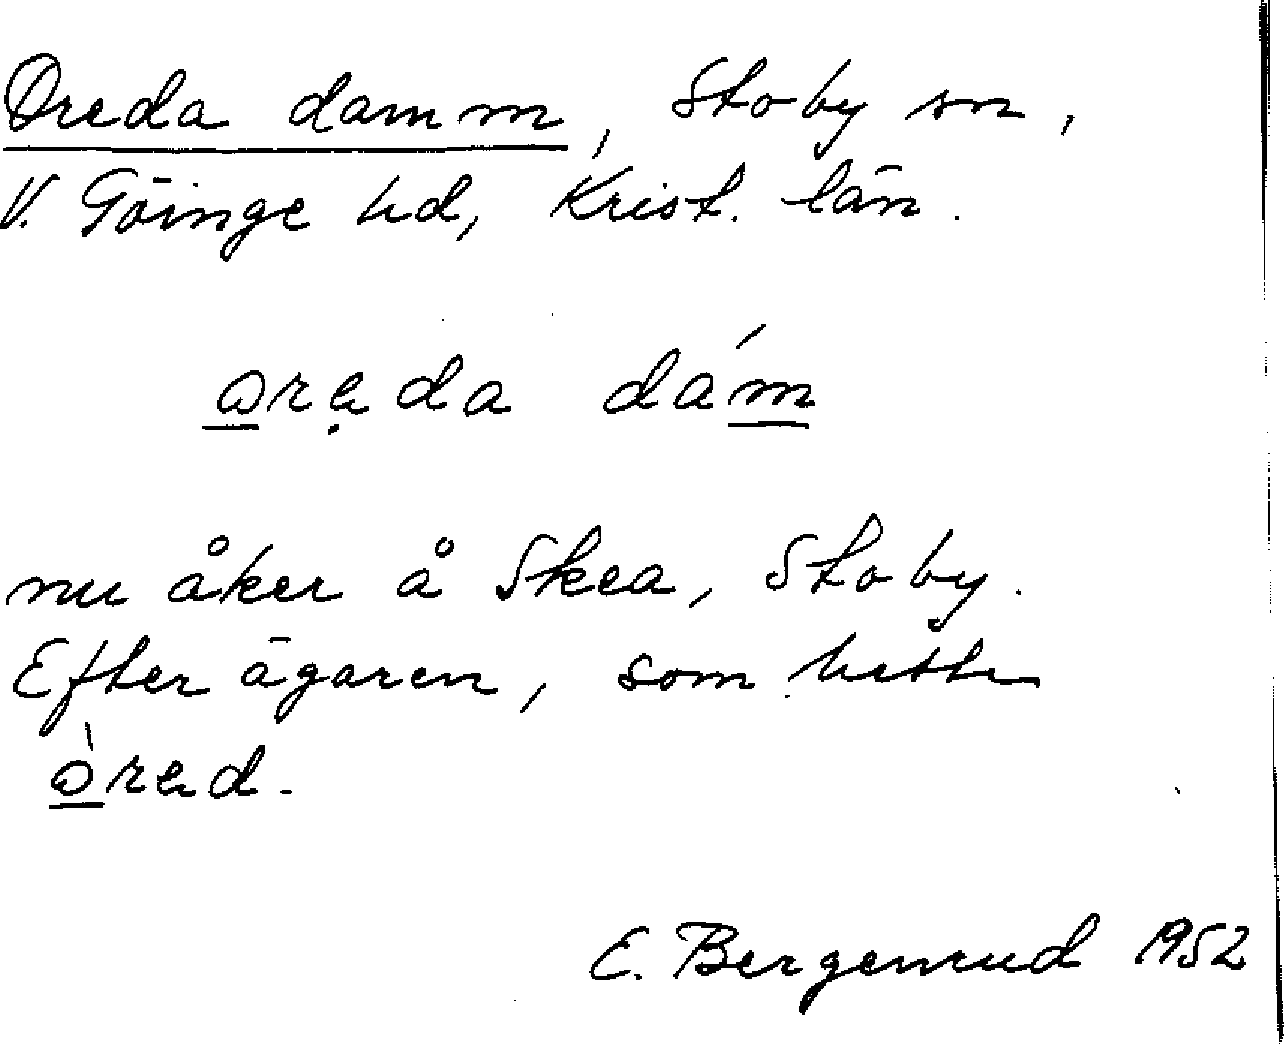 Oreda damm, Stoby sn,
V. Göinge hd, Krist. län.
oreda dám
nu åker å Skea, Stoby.
Efter ägaren, som hette
òred.
E. Bergenrud 1952